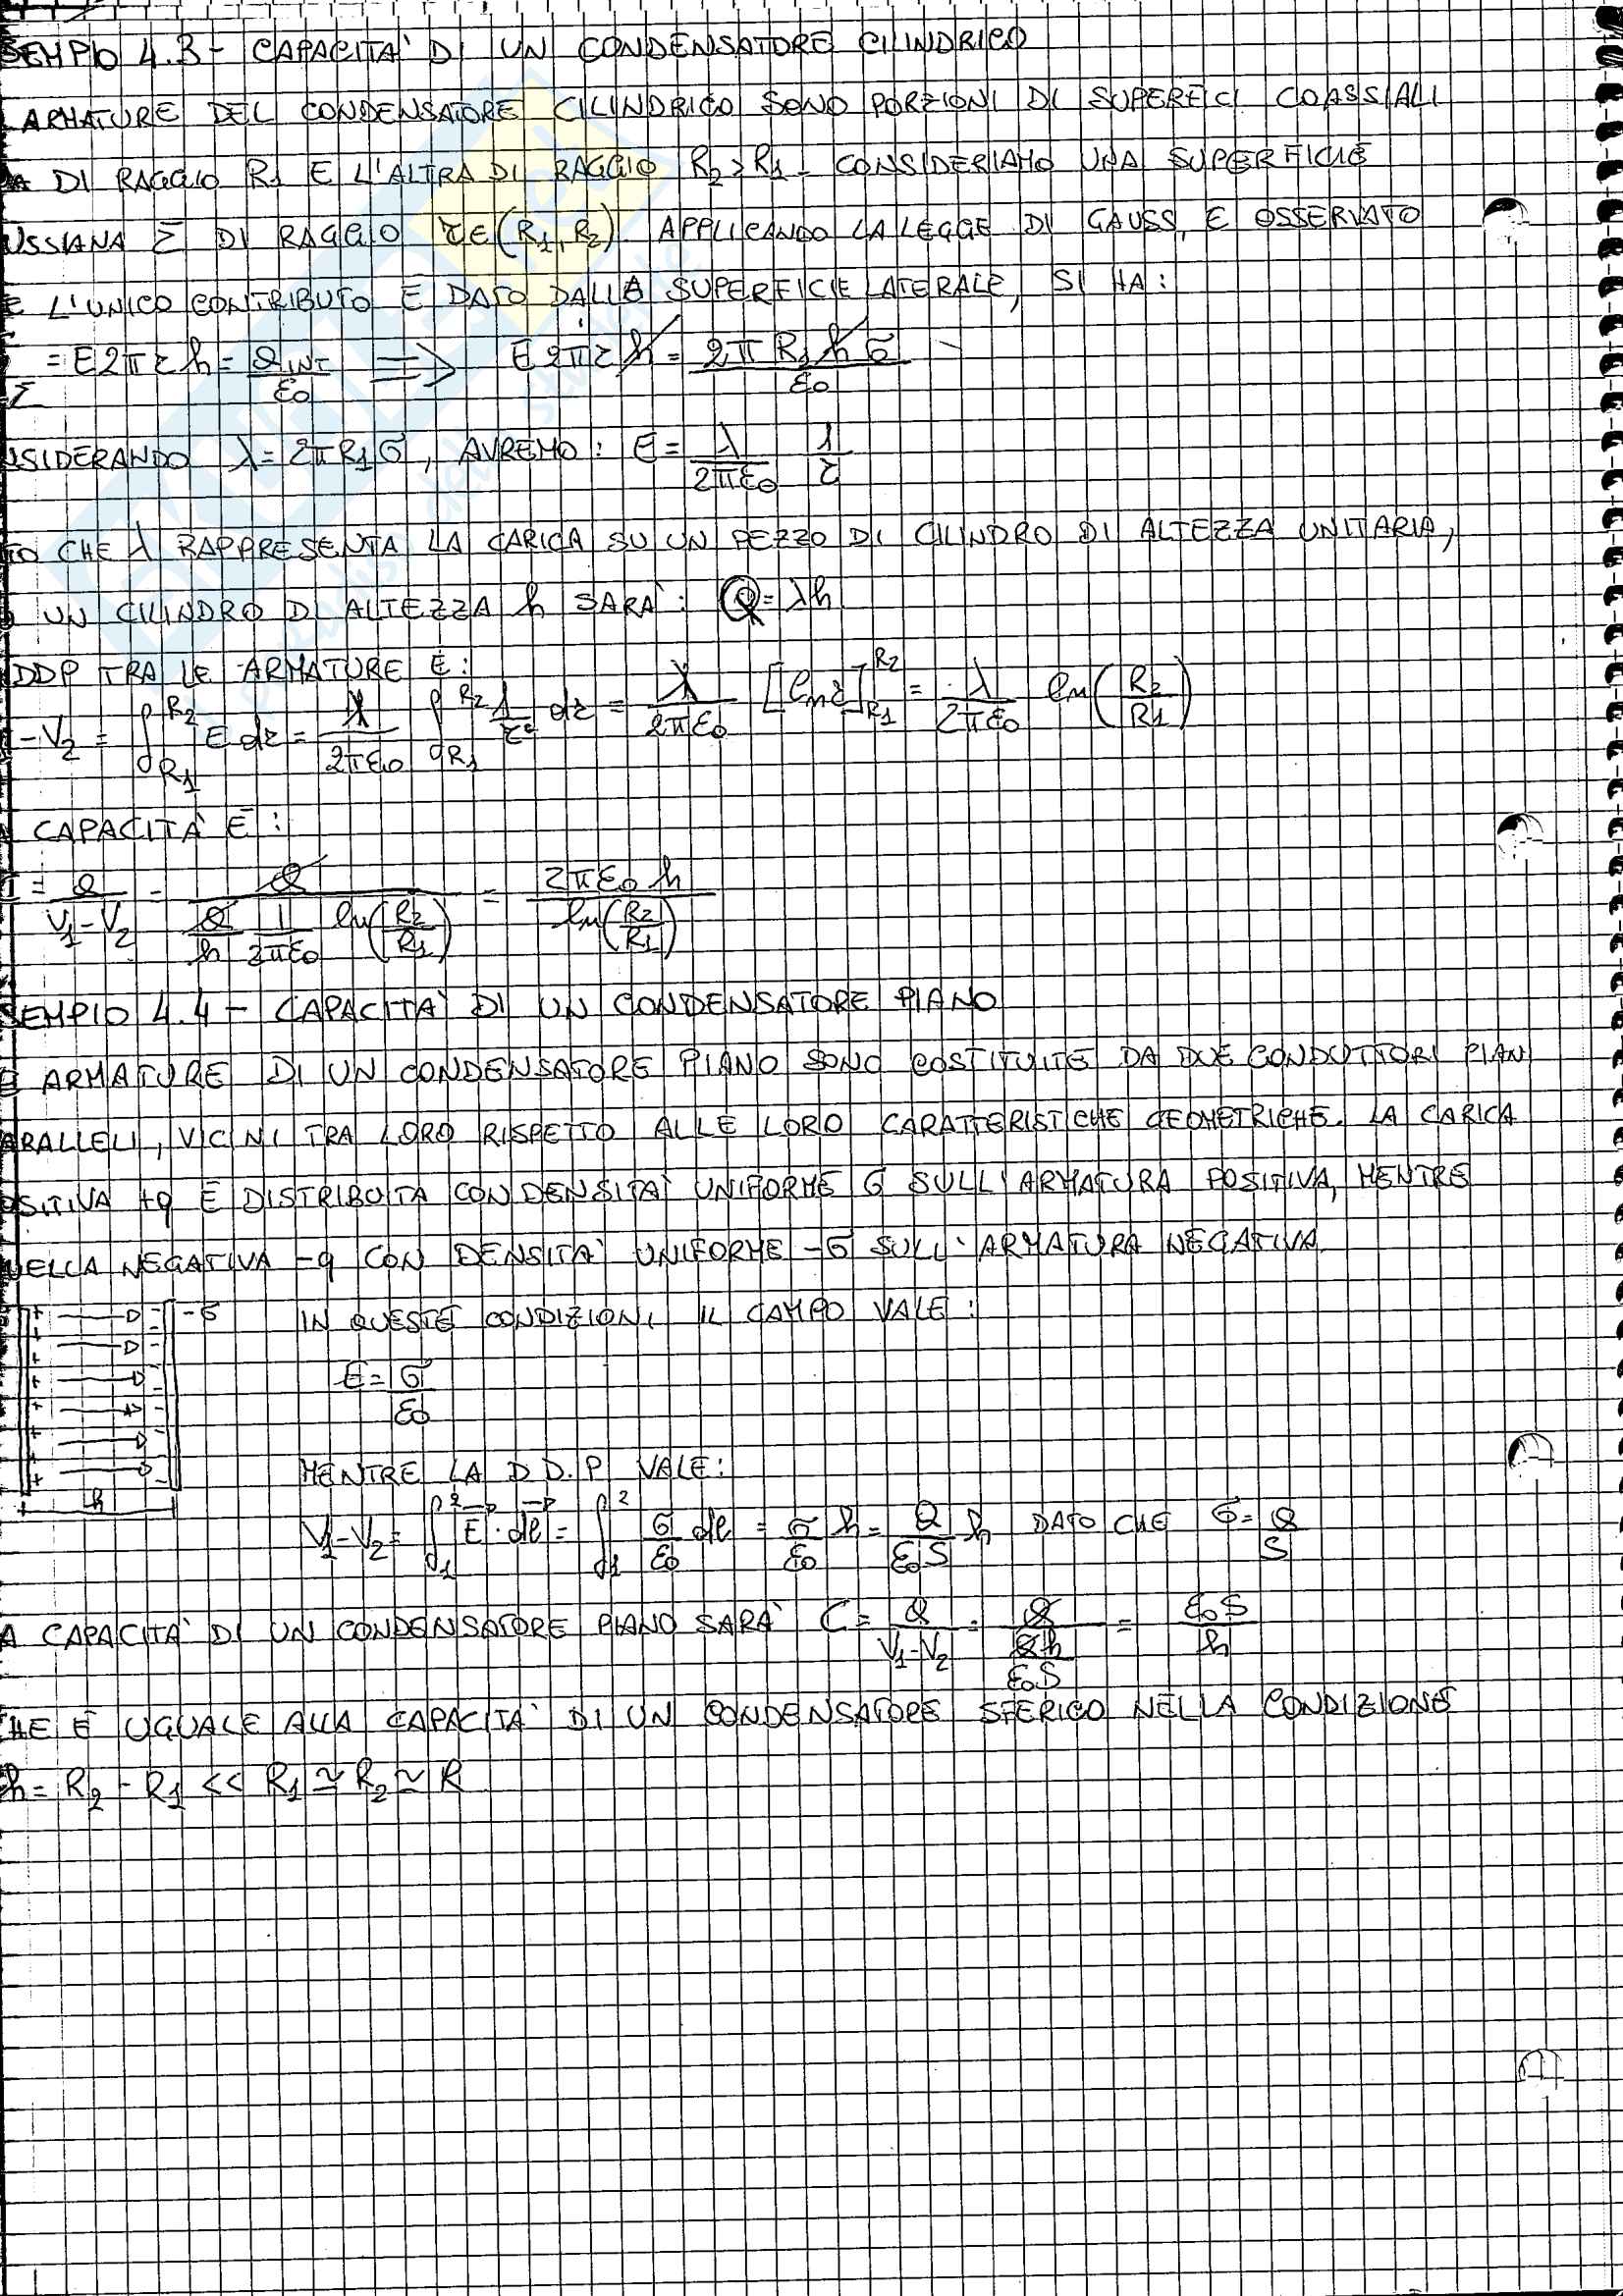 SEMPIO 4.3 - CAPACITA' DI UN CONDENSATORE CILINDRICO
ARMATURE DEL CONDENSATORE CILINDRICO SONO PORZIONI DI SUPERFICI COASSIALI
DI RAGGIO R₁ E L'ALTRA DI RAGGIO R₂>R₁. CONSIDERIAMO UNA SUPERFICIE
USSIANA Σ DI RAGGIO r∈(R₁,R₂). APPLICANDO LA LEGGE DI GAUSS, E OSSERVATO
E L'UNICO CONTRIBUTO È DATO DALLA SUPERFICIE LATERALE, SI HA:
Σ = E2πrh = Q_INT/ε₀ => E2πrh = 2πR₁hσ/ε₀
NSIDERANDO λ=2πR₁σ, AVREMO: E = λ/2πε₀ 1/r
TO CHE λ RAPPRESENTA LA CARICA SU UN PEZZO DI CILINDRO DI ALTEZZA UNITARIA,
UN CILINDRO DI ALTEZZA h SARA': Q=λh
DDP TRA LE ARMATURE È:
-V₂ = ∫_R₁^R₂ E dr = λ/2πε₀ ∫_R₁^R₂ 1/r dr = λ/2πε₀ [ln r]_R₁^R₂ = λ/2πε₀ ln(R₂/R₁)
CAPACITA' È:
C = Q/(V₁-V₂) = Q/(Q/h 1/2πε₀ ln(R₂/R₁)) = 2πε₀h/ln(R₂/R₁)
SEMPIO 4.4 - CAPACITA' DI UN CONDENSATORE PIANO
E ARMATURE DI UN CONDENSATORE PIANO SONO COSTITUITE DA DUE CONDUTTORI PIAN
ARALLELI, VICINI TRA LORO RISPETTO ALLE LORO CARATTERISTICHE GEOMETRICHE. LA CARICA
OSITIVA +q È DISTRIBUITA CON DENSITA' UNIFORME σ SULL'ARMATURA POSITIVA, MENTRE
UELLA NEGATIVA -q CON DENSITA' UNIFORME -σ SULL'ARMATURA NEGATIVA.
-σ IN QUESTE CONDIZIONI IL CAMPO VALE:
E = σ/ε₀
h MENTRE LA D.D.P VALE:
V₁-V₂ = ∫₁² E·dl = ∫₁² σ/ε₀ dl = σ/ε₀ h = Q/ε₀S h DATO CHE σ = Q/S
A CAPACITA' DI UN CONDENSATORE PIANO SARA' C = Q/(V₁-V₂) = Q/(Qh/ε₀S) = ε₀S/h
CHE È UGUALE ALLA CAPACITA' DI UN CONDENSATORE SFERICO NELLA CONDIZIONE
h = R₂ - R₁ << R₁ ≃ R₂ ≃ R